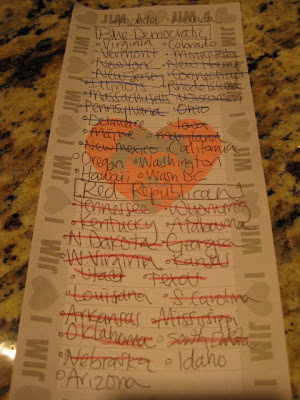 Amanda Nevada
Blue-Democratic
Virginia • Colorado
Vermont • Minnesota
New York • New Hampsh
New Jersey • Connecticut
Illinois • Rhode Island
Massachusetts • Wisconsin
Pennsylvania • Ohio
Delaware • Iowa
Maine • Maryland
New Mexico • California
Oregon • Washington
Hawaii • Wash DC
Red Republican
Tennessee • Wyoming
Kentucky • Alabama
N Dakota • Georgia
W Virginia • Kansas
Utah Texas
Louisiana • S Carolina
Arkansas • Mississippi
Oklahoma • South Dakota
Nebraska • Idaho
Arizona
I WJM
I WJM
I WJM